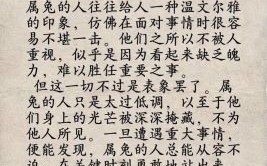 属兔的人往往给人一种温文尔雅
的印象，仿佛在面对事情时很容
易不堪一击。他们之所以不被人
重视，似乎是因为看起来缺乏魄
力，难以胜任重要之事。
但这一切不过是表象罢了。属
兔的人只是太过低调，以至于他
们身上的光芒被深深掩藏，不为
他人所见。一旦遭遇重大事情，
便能发现，属兔的人总能从容不
迫，在关键时刻勇敢地站出来，